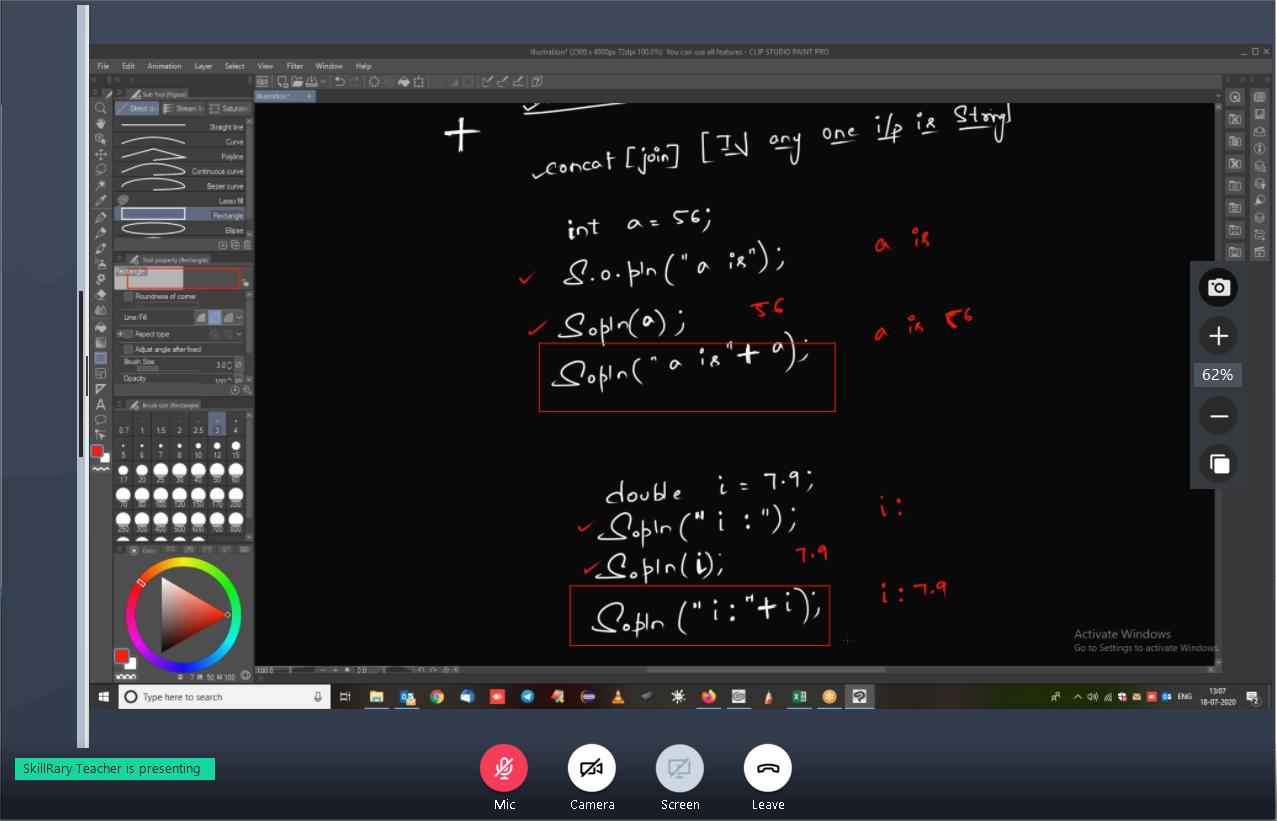 Illustration* (2500 x 4000px 72dpi 100.0%) You can use all features - CLIP STUDIO PAINT PRO
File Edit Animation Layer Select View Filter Window Help
Sub Tool [Figure]
Illustration*
Direct Stream Saturated
Straight line
Curve
Polyline
Continuous curve
Bezier curve
Lasso fill
Rectangle
Ellipse
Tool property [Rectangle]
Rectangle
Roundness of corner
Line/Fill
Aspect type
Adjust angle after fixed
Brush Size 3.0
Opacity 100
Brush size [Rectangle]
0.7 1 1.5 2 2.5 3 4
5 6 7 8 10 12 15
17 20 25 30 40 50 60
70 80 100 120 150 170 200
250 300 400 500 600 700 800
Color
+
concat [join] [If any one i/p is String]
int a = 56;
S.o.pln("a is"); a is
Sopln(a); 56
Sopln("a is"+ a); a is 56
double i = 7.9;
Sopln("i :"); i :
Sopln(i); 7.9
Sopln("i:"+i); i : 7.9
62%
Activate Windows
Go to Settings to activate Windows.
100.0 0.0
Type here to search
ENG
13:07
18-07-2020
SkillRary Teacher is presenting
Mic Camera Screen Leave